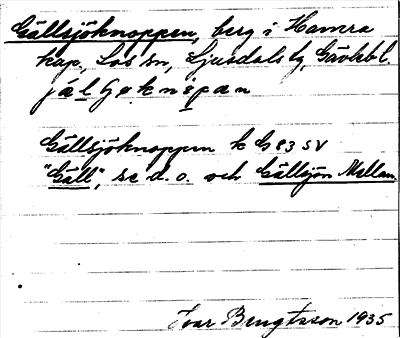 Gällsjöknoppen, berg i Hamra
kap, Los sn, Ljusdals tg, Gävlebl.
Gällsjöknoppen k G 83 SV
"Gäll", se d. o. och Gällsjön Mellan
Ivar Bengtsson 1935